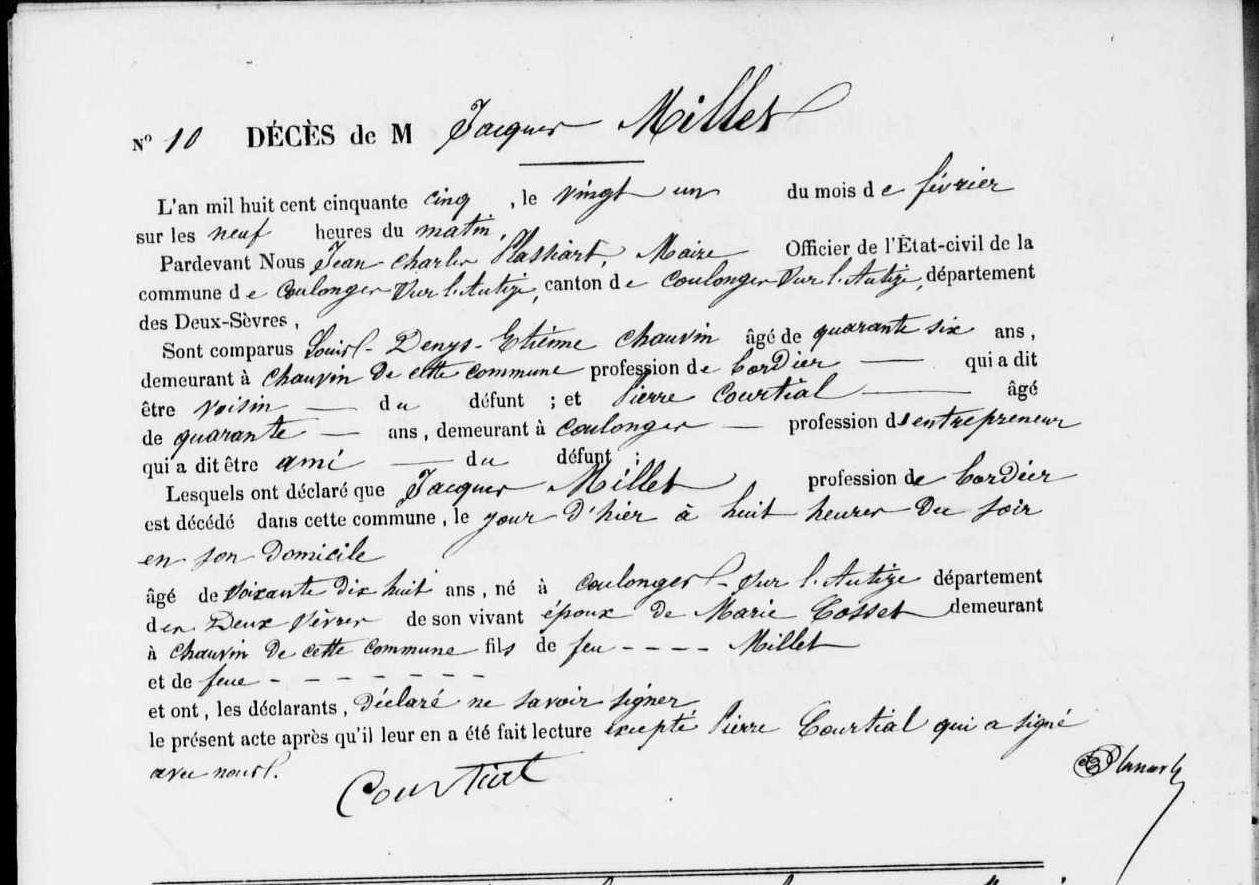 N° 10 DÉCÈS de M Jacques Millet
L'an mil huit cent cinquante cinq , le vingt un du mois de février
sur les neuf heures du matin,
Pardevant Nous Jean Charles Maire Officier de l'État-civil de la
commune de Coulonges sur l'Autize, canton de Coulonges sur l'Autize, département
des Deux-Sèvres,
Sont comparus Louis-Denys-Etienne Chauvin âgé de quarante six ans,
demeurant à Chauvin de cette commune profession de Cordier qui a dit
être voisin du défunt ; et Pierre Courtial âgé
de quarante ans, demeurant à Coulonges profession d'entrepreneur
qui a dit être ami du défunt ;
Lesquels ont déclaré que Jacques Millet profession de Cordier
est décédé dans cette commune, le jour d'hier à huit heures du soir
en son domicile
âgé de soixante dix huit ans, né à Coulonges-sur l'Autize département
des Deux Sèvres de son vivant époux de Marie Cosset demeurant
à Chauvin de cette commune fils de feu - - - - Millet
et de feue - - - - - - -
et ont, les déclarants, déclaré ne savoir signer
le présent acte après qu'il leur en a été fait lecture excepté Pierre Courtial qui a signé
avec nous.
Courtial